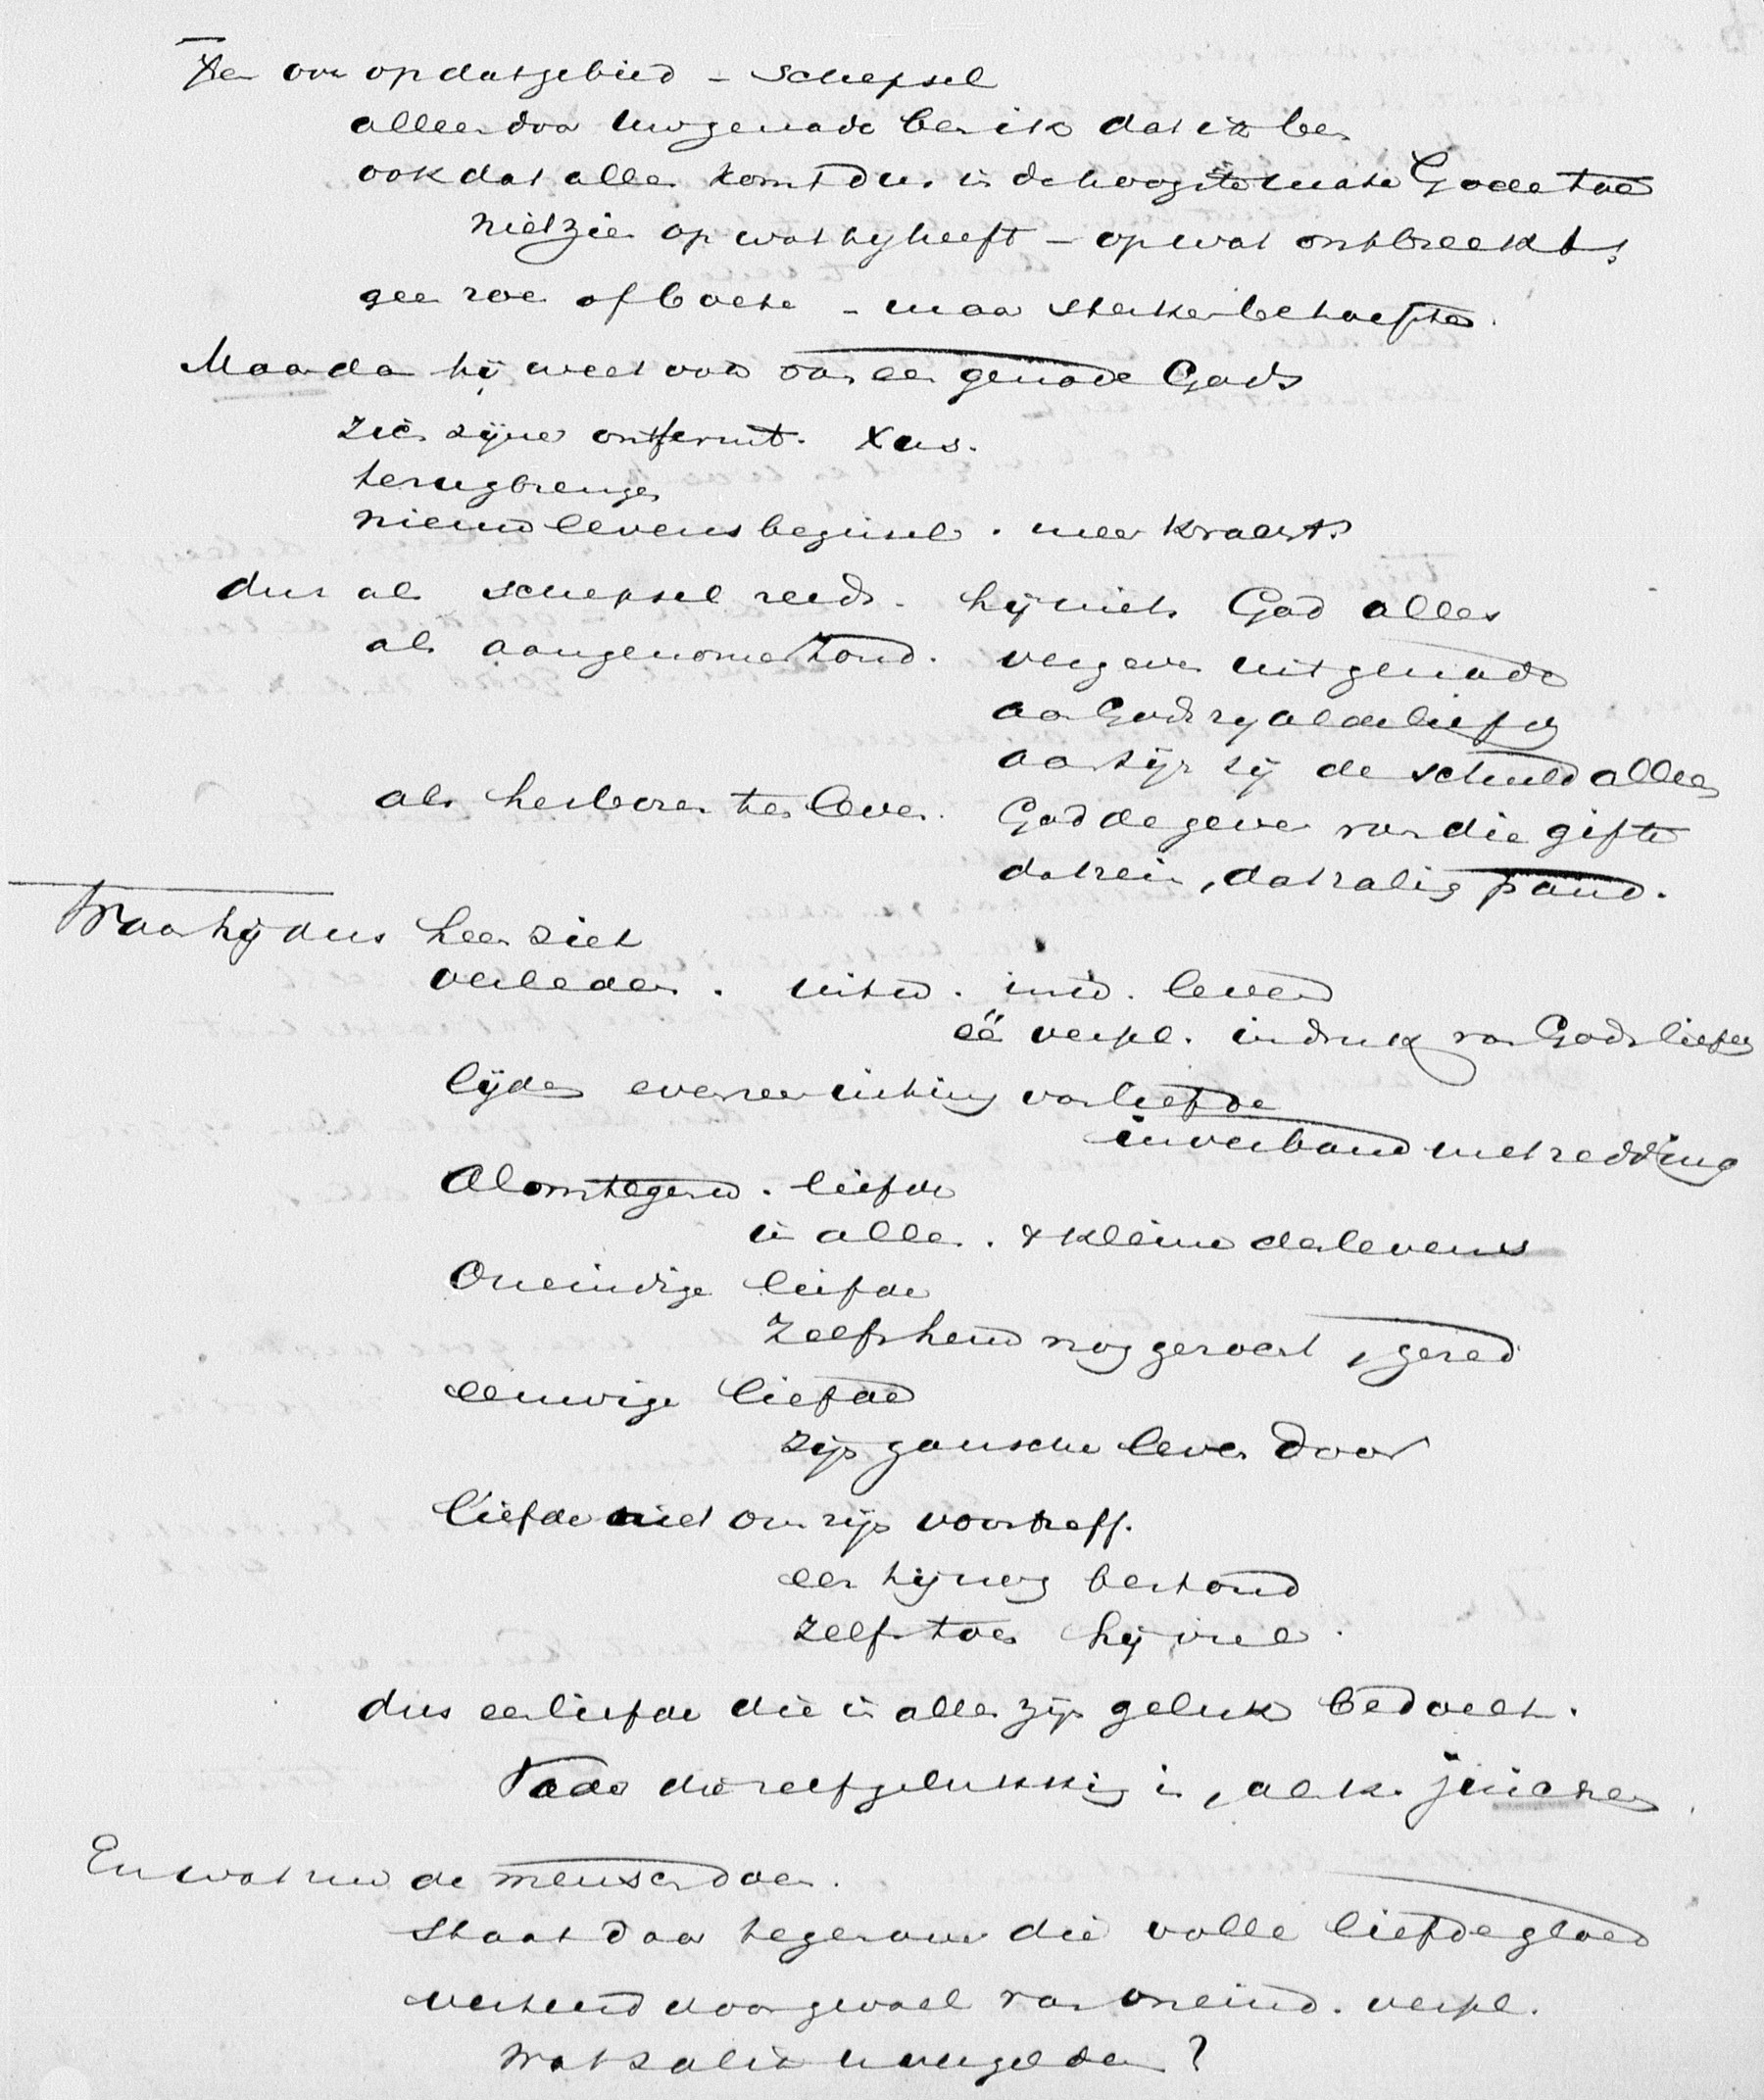 Ten over op dat gebied - schepsel
alleen door Uw genade ben ik dat ik ben
ook dat alles komt dus in de hoogste mate Gode toe
niet zien op wat hy heeft - op wat ontbreekt
geen roe of boete - maar sterker behoefte.
Maar dan hij weet ook van een genade Gods
zich zijner ontfermt. Xus.
terugbrengen
nieuw levensbeginsel. meer kracht
dus als schepsel reeds. hij niets God alles
als aangenomen zond. vergeven uit genade
aan Gods zy al de liefde
aan zijn zij de schuld alleen
als herboren ten leven. God de gever van die gifte
dat rein, dat zalig pand.
Waar hij dus heen ziet
verleden. uitw. inw. leven
éé verpl. indruk van Gods liefde
lijden evenzeer uiting van liefde
in verband met redding
Alomtegenw. liefde
in alles. & kleine des levens
Oneindige liefde
Zelfs hem nog gezocht, gered
eeuwige liefde
zijn gansche leven door
liefde niet om zijn voortreff.
eer hij nog bestond
zelfs toen hij viel.
dus een liefde die in alles zijn geluk bedoelt.
Vader die zelf gelukkig is, als k. juichen.
En wat nu de mensch doen.
Staat daar tegenover die volle liefdegloed
verteerd door gevoel van oneind. verpl.
Wat zal ik U vergelden?